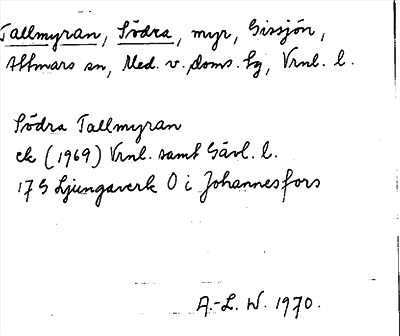 Tallmyran, Södra, myr, Gissjön,
Attmars sn, Med. v. doms. hg, Vrnl. l.
Södra Tallmyran
ek (1969) Vrnl. samt Gävl. l.
17 G Ljungaverk O i Johannesfors
A.-L. W. 1970.